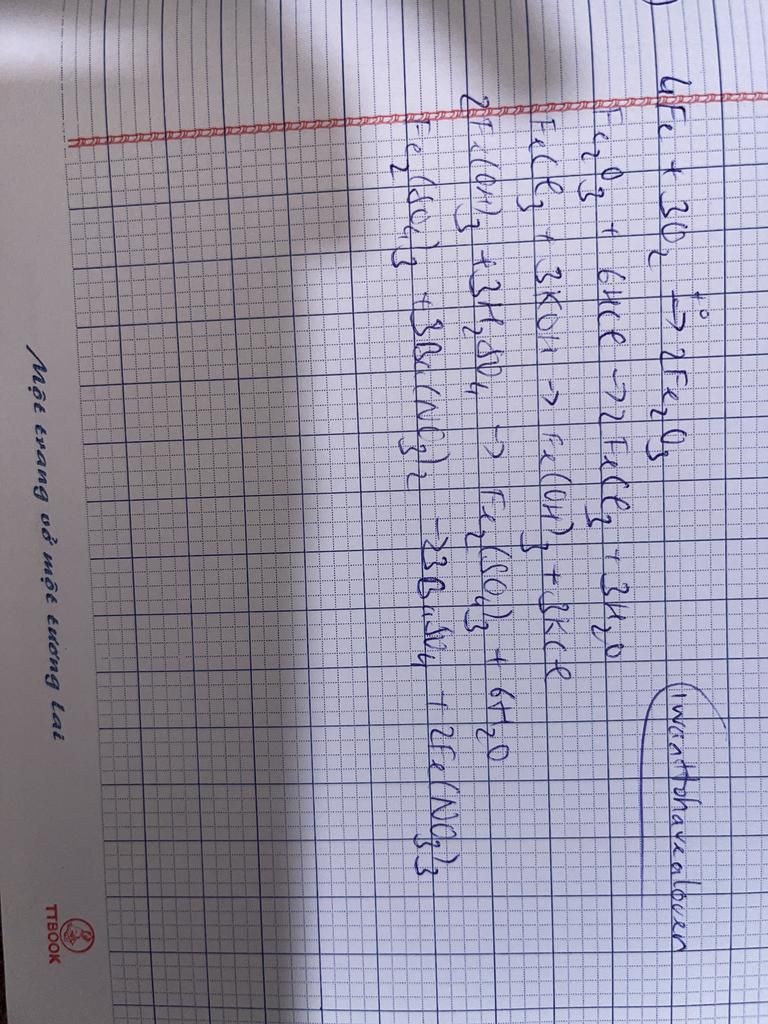 4Fe + 3O₂ t°→ 2Fe₂O₃
Fe₂O₃ + 6HCl → 2FeCl₃ + 3H₂O
FeCl₃ + 3KOH → Fe(OH)₃ + 3KCl
2Fe(OH)₃ + 3H₂SO₄ → Fe₂(SO₄)₃ + 6H₂O
Fe₂(SO₄)₃ + 3Ba(NO₃)₂ → 3BaSO₄ + 2Fe(NO₃)₃
iwanttohavealover
Một trang vở một tương lai
TTBOOK